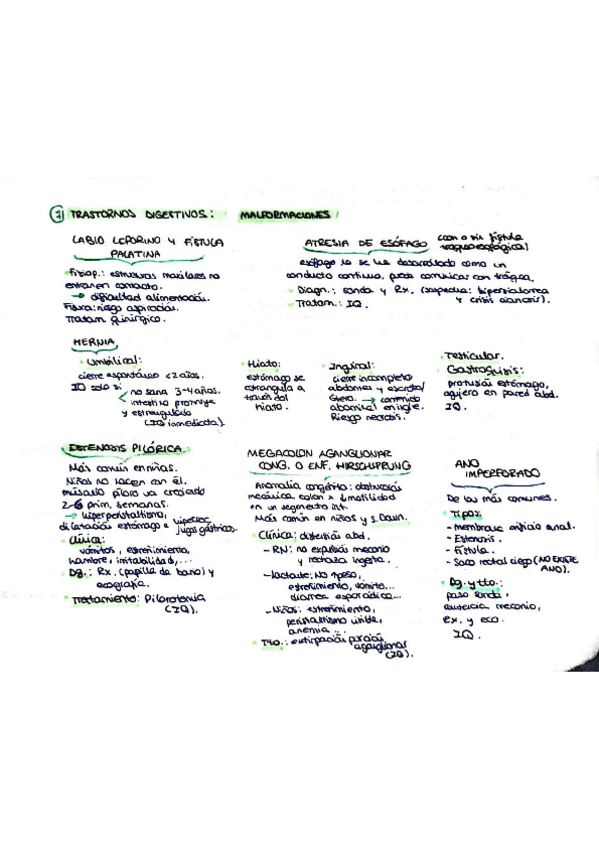 7) TRASTORNOS DIGESTIVOS: MALFORMACIONES
LABIO LEPORINO Y FÍSTULA
PALATINA
· Fisiop.: estructuras maxilares no
entran en contacto.
→ dificultad alimentación.
Fisura: riesgo aspiración.
Tratam. quirúrgico.
ATRESIA DE ESÓFAGO (con o sin fístula
traqueoesofágica)
esófago no se ha desarrollado como un
conducto continuo, puede comunicar con tráquea.
· Diagn.: sonda y Rx. (sospecha: hipersialorrea
y crisis cianosis).
· Tratam.: IQ.
HERNIA
· Umbilical:
cierre espontáneo <2 años.
IQ solo si no sana 3-4 años.
intestino protruye
y estrangulado
(IQ inmediata).
· Hiato:
estómago se
estrangula a
través del
hiato.
· Inguinal:
cierre incompleto
abdomen y escroto/
útero. → contenido
abominal en ingle.
Riesgo necrosis.
· Testicular.
· Gastrosquisis:
protusión estómago,
agujero en pared abd.
IQ.
ESTENOSIS PILÓRICA
Más común en niñas.
Niños no nacen con él.
músculo píloro va creciendo
2-6 prim. semanas.
→ hiperperistaltismo,
dilatación estómago e hipersec.
jugos gástricos.
· Clínica:
vómitos, estreñimiento,
hambre, irritabilidad,...
· Dg.: Rx. (papilla de bario) y
ecografía.
· Tratamiento: Pilorotomía
(IQ).
MEGACOLON AGANGLIONAR
CONG. O ENF. HIRSCHSPRUNG
Anomalía congénita: obstrucción
mecánica colon x ↓ motilidad
en un segmento int.
Más común en niños y s. Down.
· Clínica: distensión abd.
- RN: no expulsión meconio
y rechaza ingesta.
- Lactante: NO ↑peso,
estreñimiento, vómito...
diarrea esporádica...
- Niños: estreñimiento,
peristaltismo visible,
anemia.
· Tto.: extirpación porción
aganglionar
(IQ).
ANO
IMPERFORADO
De los más comunes.
· Tipos:
- membrana orificio anal.
- Estenosis.
- Fístula.
- Saco rectal ciego (NO EXISTE
ANO).
· Dg. y tto.:
paso sonda,
ausencia meconio,
Rx. y eco.
IQ.